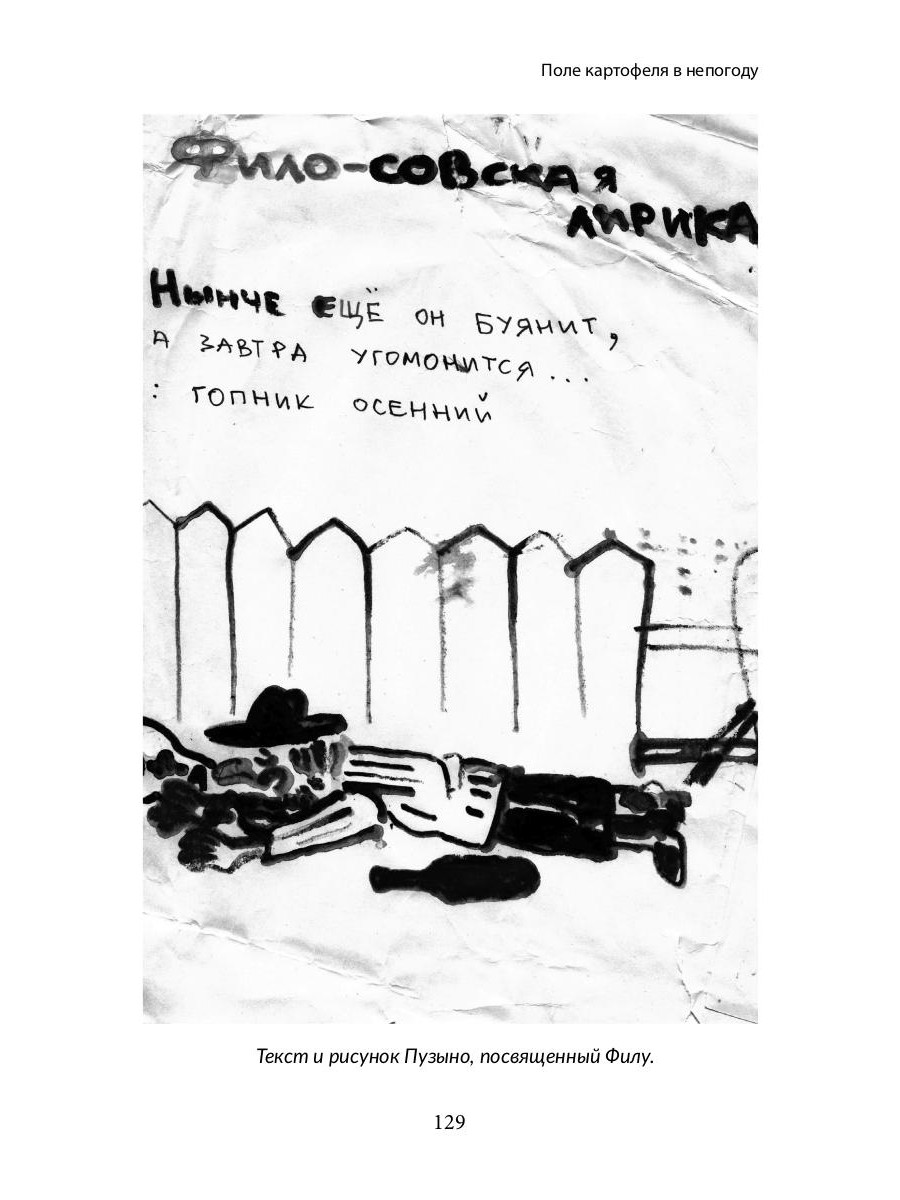 Поле картофеля в непогоду
Фило-совская
лирика
Нынче ещё он буянит,
а завтра угомонится...
: гопник осенний
Текст и рисунок Пузыно, посвященный Филу.
129